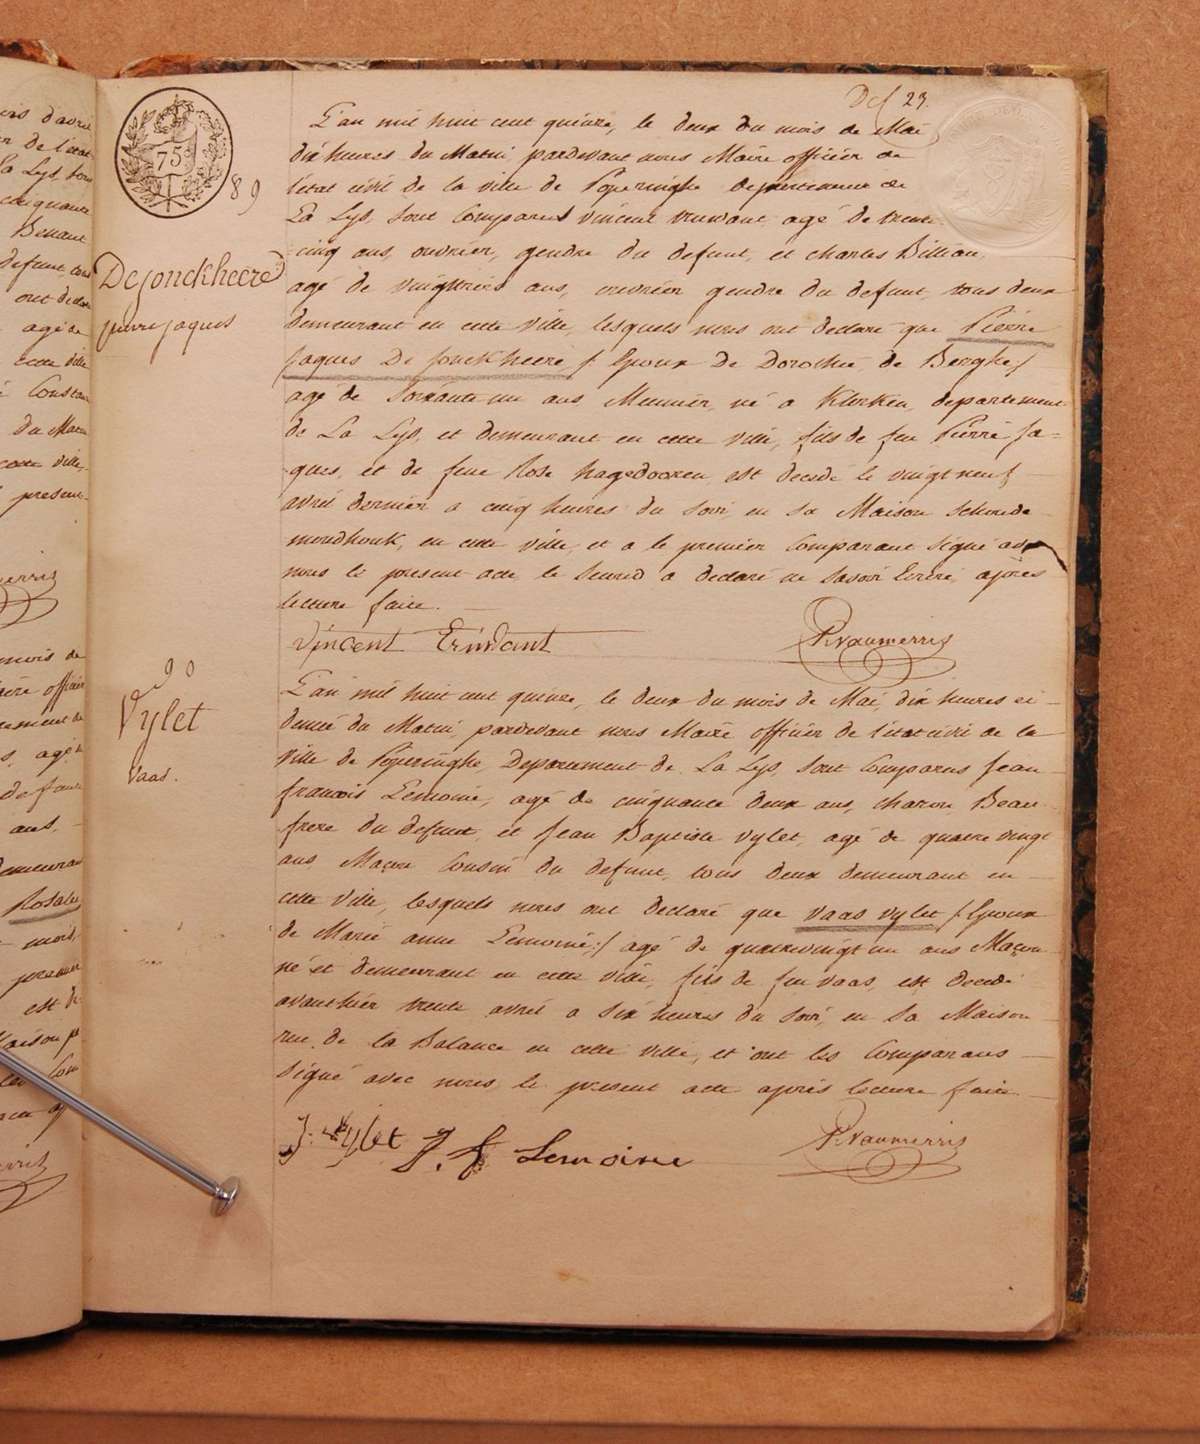 Def 23.
75
89
Dejonckheere
pierre jaques
L'an mil huit cent quinze, le deux du mois de Mai
dix heures du Matin pardevant nous Maire officier de
l'état civil de la ville de Poperinghe departement de
La Lys, sont Comparus vincent agé de trente
cinq ans, ouvrier, gendre du defunt, et charles Billiau,
agé de vingttrois ans, ouvrier gendre du defunt, tous deux
demeurant en cette ville, lesquels nous ont declaré que Pierre
Jaques De Jonckheere /: Epoux de Dorothée de Berghe:/
agé de soixante un ans Meunier, né a Klerken, departement
de La Lys, et demeurant en cette ville, fils de feu Pierre Ja-
ques, et de feue Rose hagedooren est decedé le vingt neuf
avril dernier a cinq heures du soir, en sa Maison
en cette ville, et a le premier Comparant signé avec
nous le present acte le second a declaré ne savoir Ecrire, après
lecture faite.
Vincent
P. vanmerris
90
Vylet
vaas.
L'an mil huit cent quinze, le deux du mois de Mai, dix heures et
demie du Matin, pardevant nous Maire officier de l'état civil de la
ville de Poperinghe, Departement de La Lys, sont Comparus Jean
francois Lemoine, agé de cinquante deux ans, charon, Beau
frere du defunt, et Jean Baptiste vylet, agé de quatre vingt
ans, Maçon Cousin du defunt, tous deux demeurant en
cette ville, lesquels nous ont declaré que vaas vylet /: Epoux
de Marie anne Lemoine:/ agé de quatrevingt un ans Maçon
né et demeurant en cette ville, fils de feu vaas, est decedé
avanthier trente avril a six heures du soir, en sa Maison
rue de la Balance en cette ville, et ont les Comparans
signé avec nous le present acte après lecture faite.
J. Vylet J. f. Lemoine
P. vanmerris